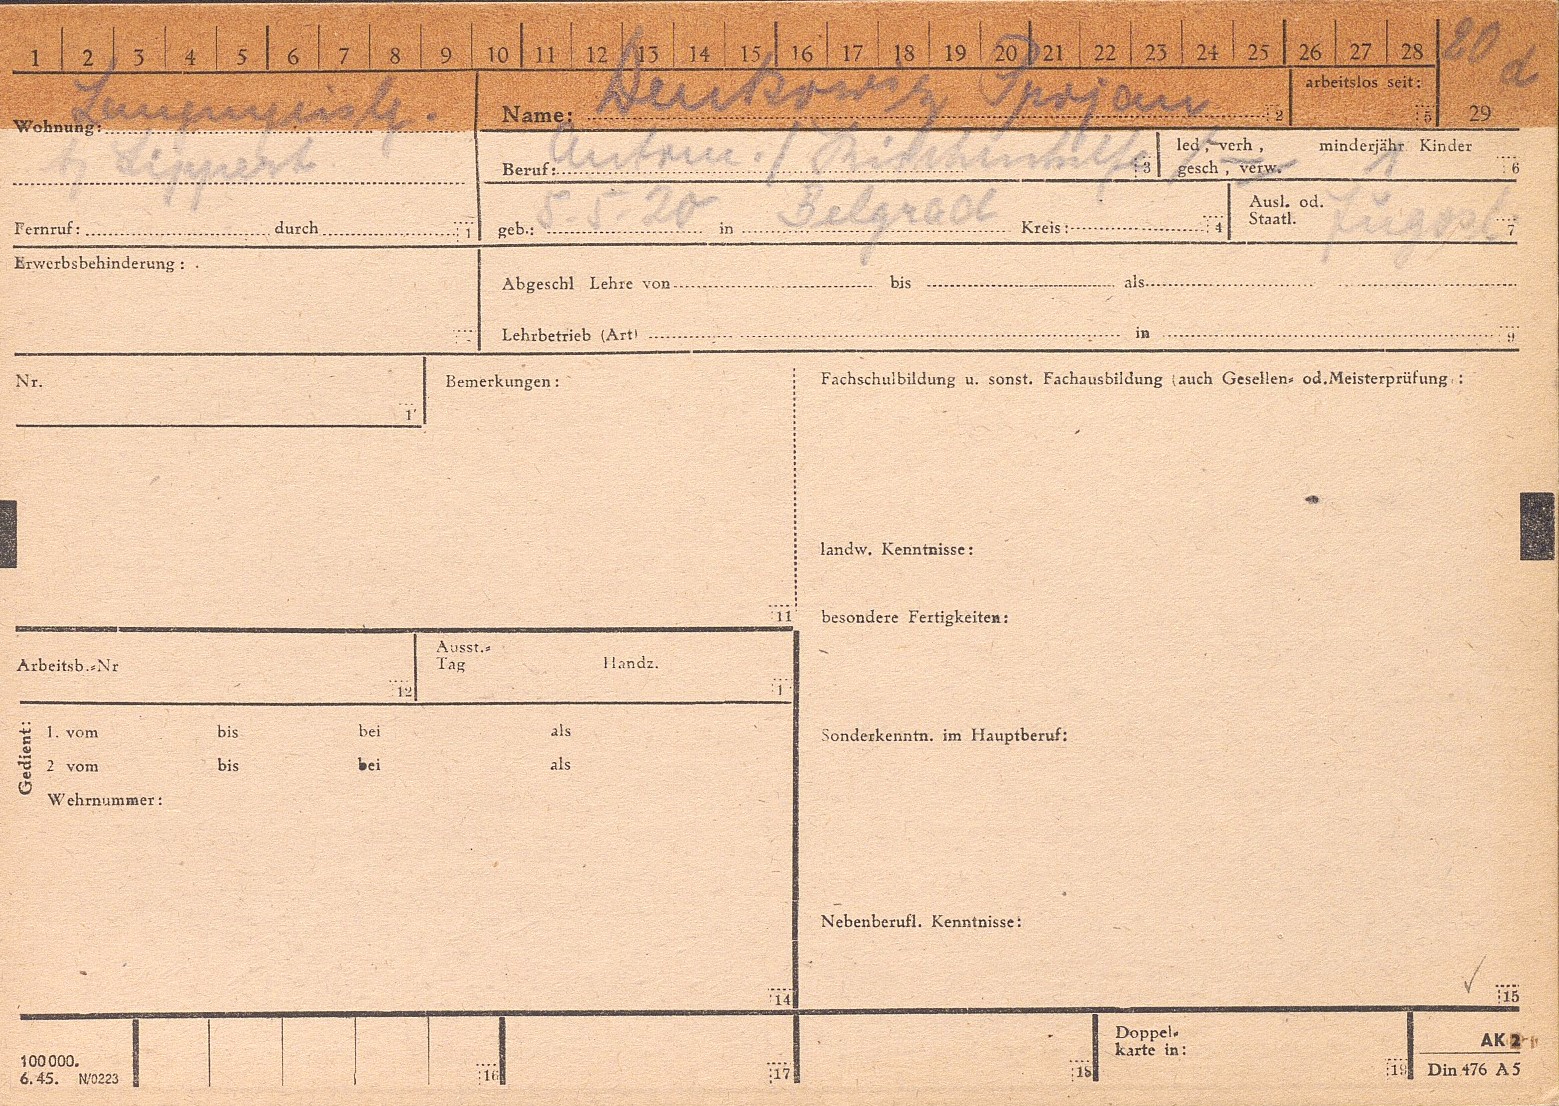 1 2 3 4 5 6 7 8 9 10 11 12 13 14 15 16 17 18 19 20 21 22 23 24 25 26 27 28 20 d
29
arbeitslos seit: 5
Wohnung:
b/ Lippert
Name: Denkowiz Trojan 2
Beruf: / 3
led, verh, gesch, verw. minderjähr Kinder 1 6
Fernruf: durch 1
geb.: 5.5.20 in Belgrad Kreis: 4
Ausl. od.
Staatl. Jugosl. 7
Erwerbsbehinderung:
Abgeschl Lehre von bis als
Lehrbetrieb (Art) in 9
Nr.
1
Bemerkungen:
11
Fachschulbildung u. sonst. Fachausbildung (auch Gesellen- od. Meisterprüfung):
landw. Kenntnisse:
besondere Fertigkeiten:
Arbeitsb.-Nr 12
Ausst.-
Tag Handz. 1
Gedient:
1. vom bis bei als
2 vom bis bei als
Wehrnummer:
14
Sonderkenntn. im Hauptberuf:
Nebenberufl. Kenntnisse:
✓ 15
100000.
6.45. N/0223
16
17
18
Doppel-
karte in: 19
AK 2
Din 476 A5